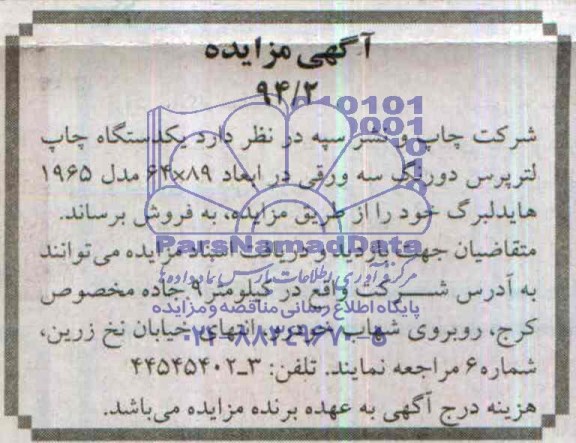 آگهی مزایده
۹۴/۲
شرکت چاپ و نشر سپه در نظر دارد یکدستگاه چاپ
لترپرس دورنگ سه ورقی در ابعاد ۸۹×۶۴ مدل ۱۹۶۵
هایدلبرگ خود را از طریق مزایده، به فروش برساند.
متقاضیان جهت بازدید و دریافت اسناد مزایده می‌توانند
به آدرس شرکت واقع در کیلومتر ۹ جاده مخصوص
کرج، روبروی شهاب خودرو، انتهای خیابان نخ زرین،
شماره۶ مراجعه نمایند. تلفن: ۳ـ۴۴۵۴۵۴۰۲
هزینه درج آگهی به عهده برنده مزایده می‌باشد.
ParsNamadData
مرکز فرآوری اطلاعات پارس نماد داده‌ها
پایگاه اطلاع رسانی مناقصه و مزایده
۰۲۱-۸۸۳۴۹۶۷۰-۵